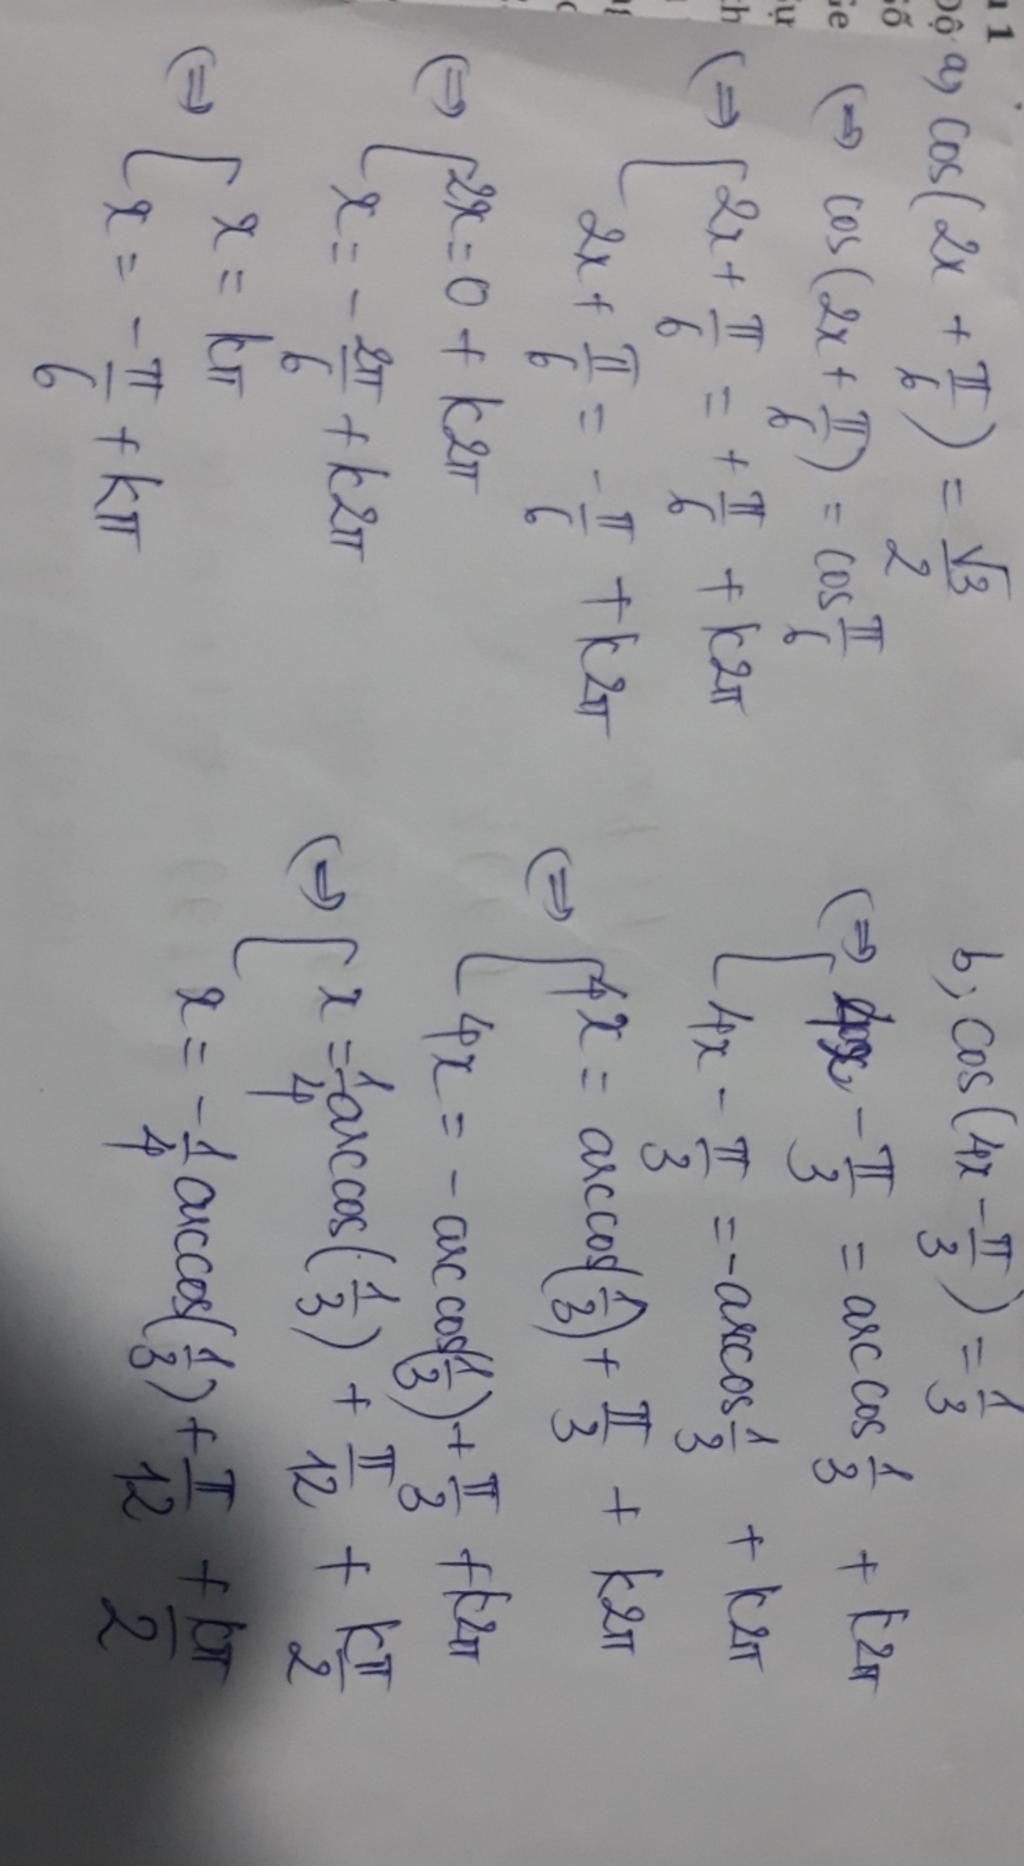 a, cos(2x + π/6) = √3/2
(=) cos(2x + π/6) = cos π/6
(=) [ 2x + π/6 = + π/6 + k2π
2x + π/6 = - π/6 + k2π
(=) [ 2x = 0 + k2π
x = - 2π/6 + k2π
(=) [ x = kπ
x = - π/6 + kπ
b, cos(4x - π/3) = 1/3
(=) [ 4x - π/3 = arccos 1/3 + k2π
4x - π/3 = - arccos 1/3 + k2π
(=) [ 4x = arccos(1/3) + π/3 + k2π
4x = - arccos(1/3) + π/3 + k2π
(=) [ x = 1/4 arccos(1/3) + π/12 + kπ/2
x = - 1/4 arccos(1/3) + π/12 + kπ/2